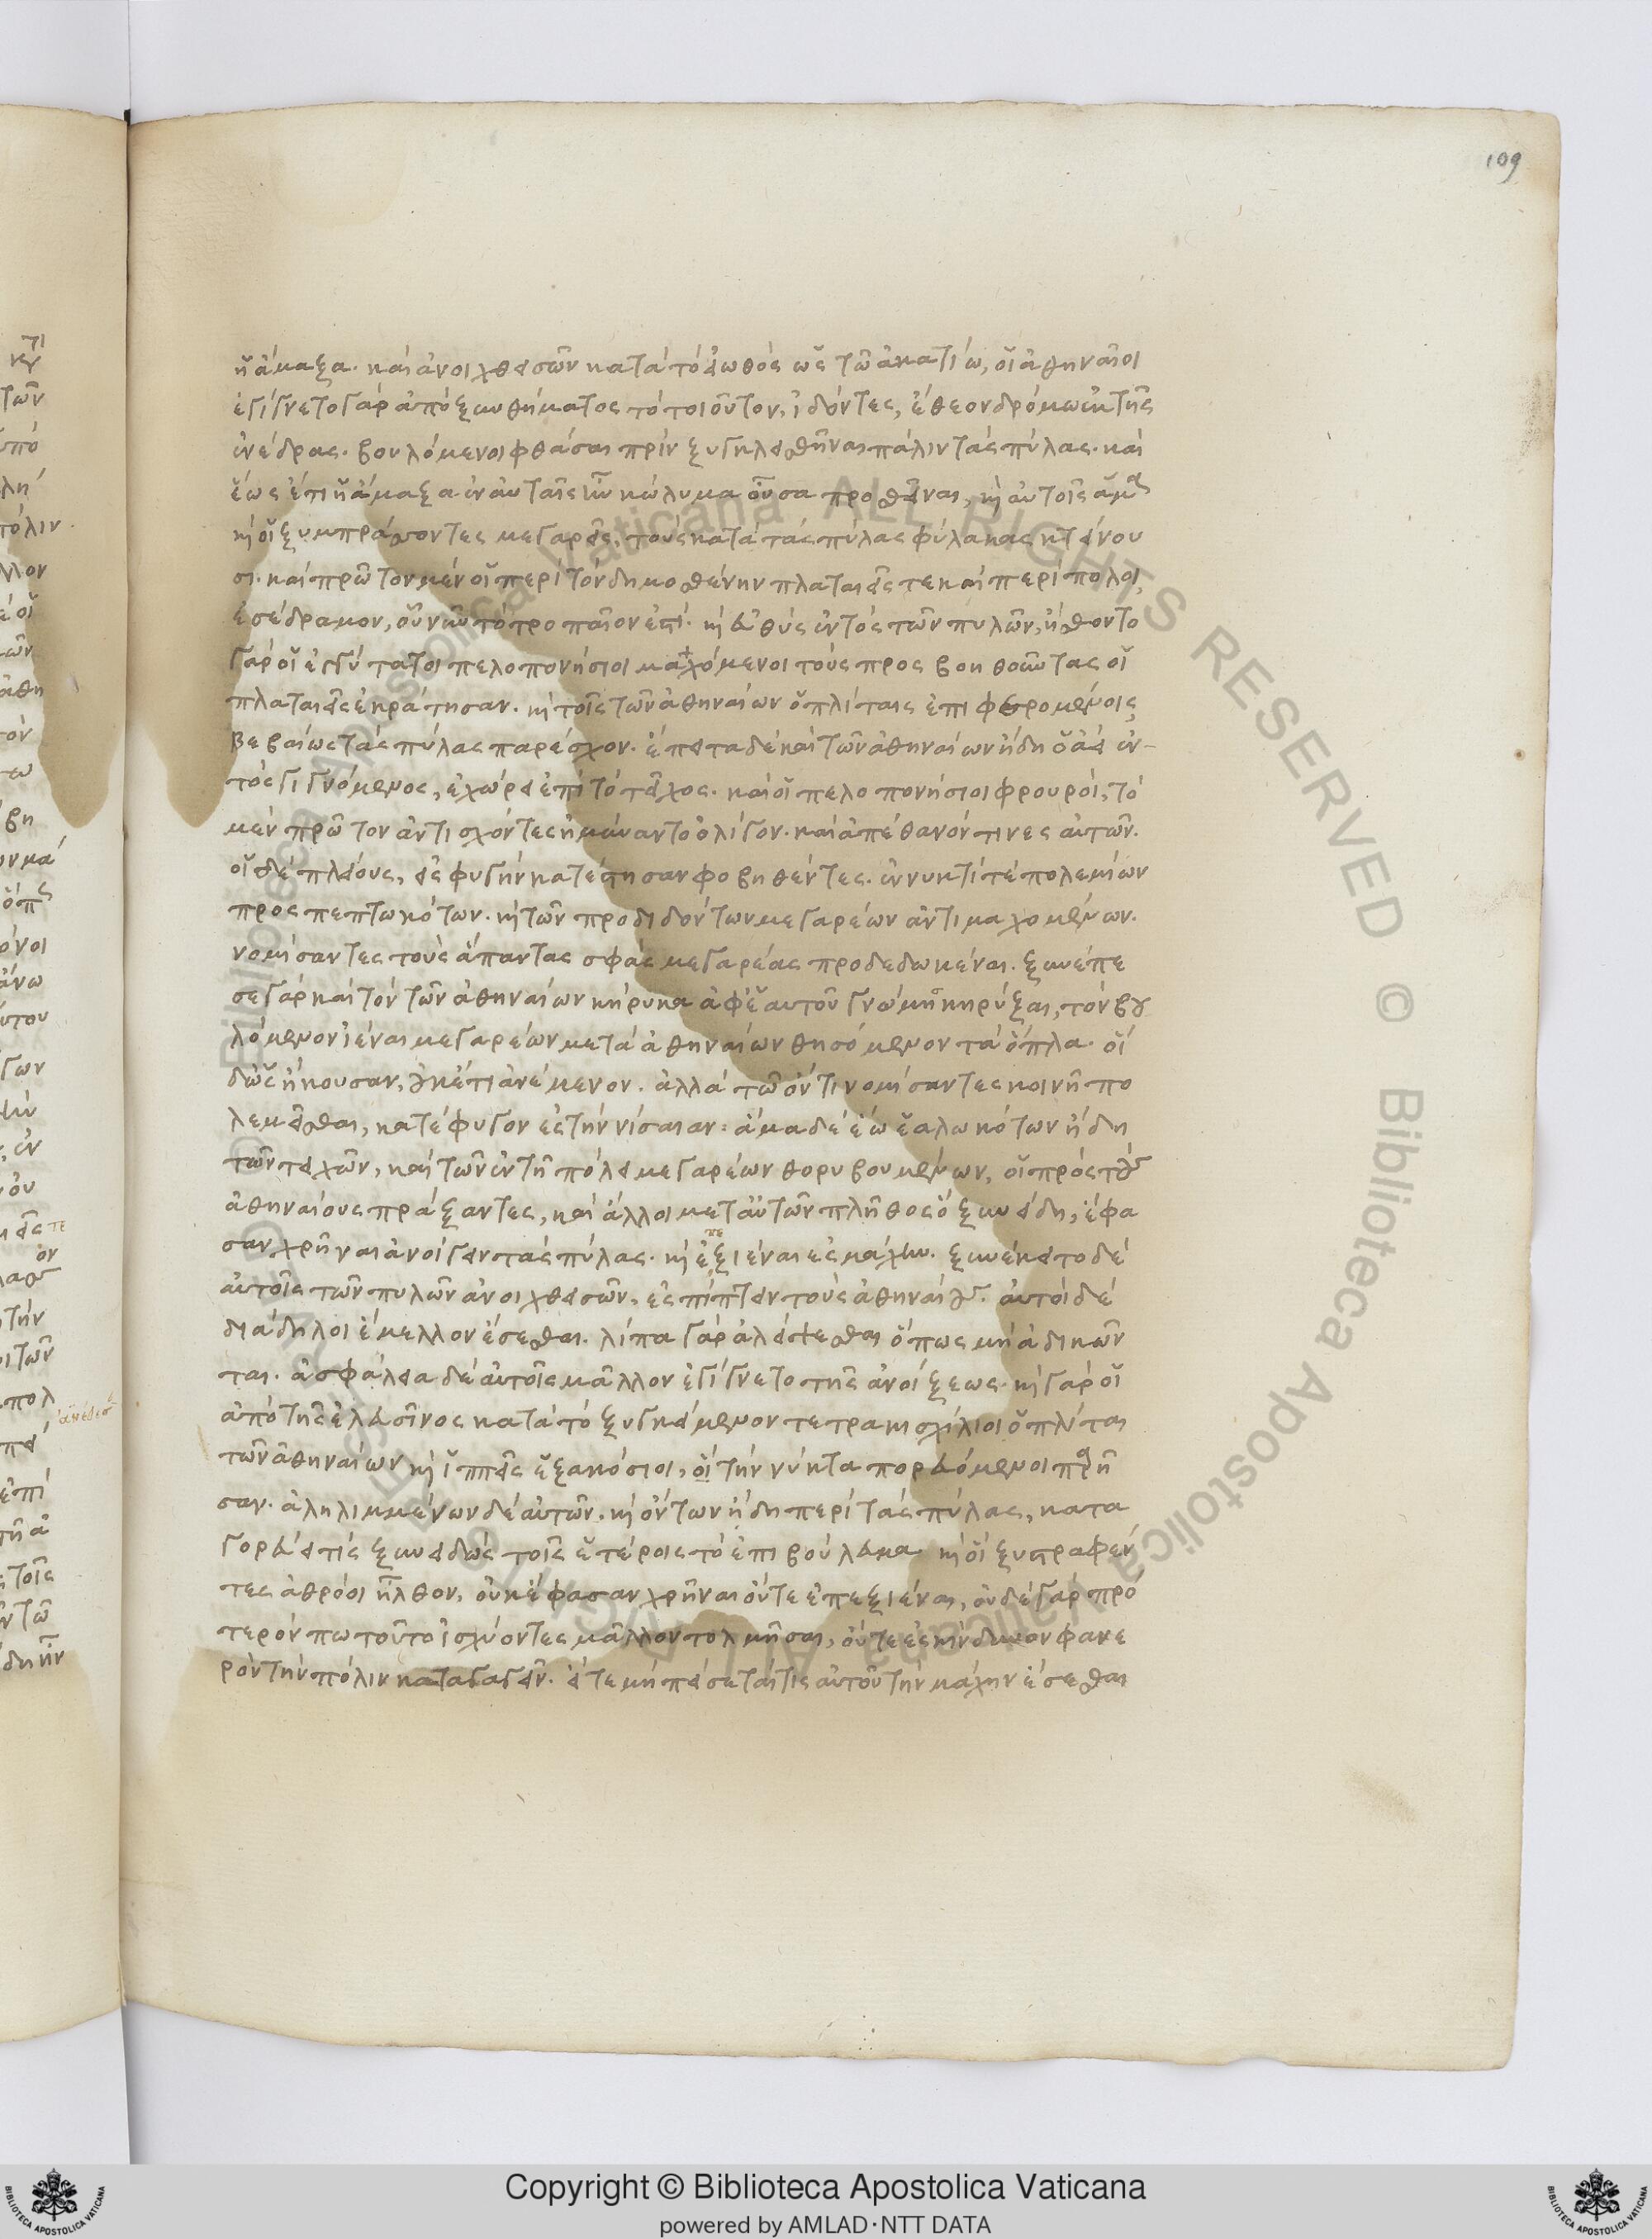 109
ἡ ἅμαξα. καὶ ἀνοιχθεισῶν κατὰ τὸ εἰωθὸς ὡς τῶ ἀκατίω, οἱ ἀθηναῖοι
ἐγίγνετο γὰρ ἀπὸ ξυνθήματος τὸ τοιοῦτον, ἰδόντες, ἔθεον δρόμω ἐκ τῆς
ἐνέδρας. βουλόμενοι φθάσαι πρὶν ξυγκλεισθῆναι πάλιν τὰς πύλας. καὶ
ἕως ἔτι ἡ ἅμαξα ἐν αὐταῖς ἦν κώλυμα οὖσα προσθεῖναι, κ̀ αὐτοῖς ἅμα
κ̀ οἱ ξυμπράσσοντες μεγαρεῖς, τοὺς κατὰ τὰς πύλας φύλακας κτείνου
σι. καὶ πρῶτον μὲν οἱ περὶ τὸν δημοσθένην πλαταιεῖς τε καὶ περίπολοι,
ἐσέδραμον, οὗ νῦν τὸ τροπαῖον ἐστί. κ̀ εὐθὺς ἐντὸς τῶν πυλῶν, ἤσθοντο
γὰρ οἱ ἐγγύτατοι πελοπονήσιοι μαχόμενοι τοὺς προσβοηθοῦντας οἱ
πλαταιεῖς ἐκράτησαν. κ̀ τοῖς τῶν ἀθηναίων ὁπλίταις ἐπιφερομένοις
βεβαίως τὰς πύλας παρέσχον. ἔπειτα δὲ καὶ τῶν ἀθηναίων ἤδη ὁ ἀεὶ ἐν-
τὸς γιγνόμενος, ἐχώρει ἐπὶ τὸ τεῖχος. καὶ οἱ πελοπονήσιοι φρουροὶ, τὸ
μὲν πρῶτον ἀντισχόντες ἠμύναντο ὀλίγον. καὶ ἀπέθανόν τινες αὐτῶν.
οἱ δὲ πλείους, εἰς φυγὴν κατέστησαν φοβηθέντες. ἐν νυκτί τέ πολεμίων
προσπεπτωκότων. κ̀ τῶν προδιδόντων μεγαρέων ἀντιμαχομένων.
νομίσαντες τοὺς ἅπαντας σφᾶς μεγαρέας προδεδωκέναι. ξυνέπε
σε γὰρ καὶ τὸν τῶν ἀθηναίων κήρυκα ἀφ' ἑαυτοῦ γνώμη κηρύξαι, τὸν βου
λόμενον ἰέναι μεγαρέων μετὰ ἀθηναίων θησόμενον τὰ ὅπλα. οἱ
δ' ὡς ἤκουσαν, οὐκέτι ἀνέμενον. ἀλλὰ τῶ ὄντι νομίσαντες κοινῆ πο
λεμεῖσθαι, κατέφυγον ἐς τὴν νίσαιαν. ἅμα δὲ ἕω ἑαλωκότων ἤδη
τῶν τειχῶν, καὶ τῶν ἐν τῆ πόλει μεγαρέων θορυβουμένων, οἱ πρὸς τοὺς
ἀθηναίους πράξαντες, καὶ ἄλλοι μετ' αὐτῶν πλῆθος ὃ ξυνείδη, ἔφα
σαν χρῆναι ἀνοίγειν τὰς πύλας. κ̀ ἐπεξιέναι ἐς μάχην. ξυνέκειτο δὲ
αὐτοῖς τῶν πυλῶν ἀνοιχθεισῶν, ἐσπίπτειν τοὺς ἀθηναίους. αὐτοὶ δὲ
διάδηλοι ἔμελλον ἔσεσθαι. λίπα γὰρ ἀλείψεσθαι ὅπως μὴ ἀδικῶν
ται. ἀσφάλεια δὲ αὐτοῖς μᾶλλον ἐγίγνετο τῆς ἀνοίξεως. κ̀ γὰρ οἱ
ἀπὸ τῆς ἐλευσῖνος κατὰ τὸ ξυγκείμενον τετρακισχίλιοι ὁπλῖται
τῶν ἀθηναίων κ̀ ἱππεῖς ἑξακόσιοι, οἱ τὴν νύκτα πορευόμενοι παρῆ
σαν. ἀληλιμμένων δὲ αὐτῶν. κ̀ ὄντων ἤδη περὶ τὰς πύλας, κατα
γορεύει τίς ξυνειδὼς τοῖς ἑτέροις τὸ ἐπιβούλευμα. κ̀ οἱ ξυστραφέν
τες ἀθρόοι ἦλθον, οὐκ ἔφασαν χρῆναι οὔτε ἐπεξιέναι, οὐδὲ γὰρ πρό
τερόν πω τοῦτο ἰσχύοντες μᾶλλον τολμῆσαι, οὔτε ἐς κίνδυνον φανε
ρὸν τὴν πόλιν καταγαγεῖν. εἴτε μὴ πείσεταί τις αὐτοῦ τὴν μάχην ἔσεσθαι
Copyright © Biblioteca Apostolica Vaticana
powered by AMLAD·NTT DATA